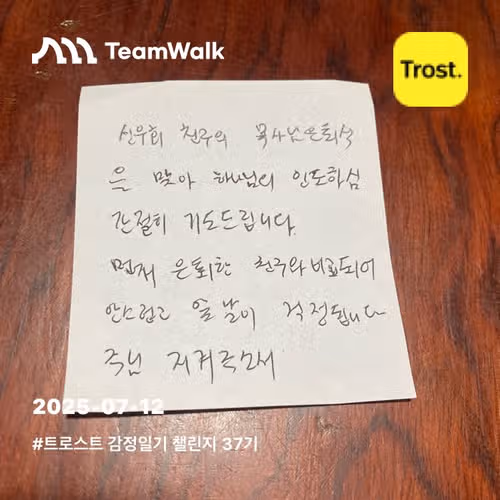 TeamWalk
Trost.
신우회 친구의 목사님은퇴식
을 맞아 하나님의 인도하심
간절히 기도드립니다.
먼저 은퇴한 친구와비교되어
안스럽고 앞날이 걱정됩니다
주님 지켜주소서
2025-07-12
#트로스트 감정일기 챌린지 37기